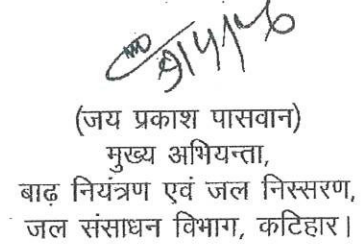 (जय प्रकाश पासवान)
मुख्य अभियन्ता,
बाढ़ नियंत्रण एवं जल निस्सरण,
जल संसाधन विभाग, कटिहार।